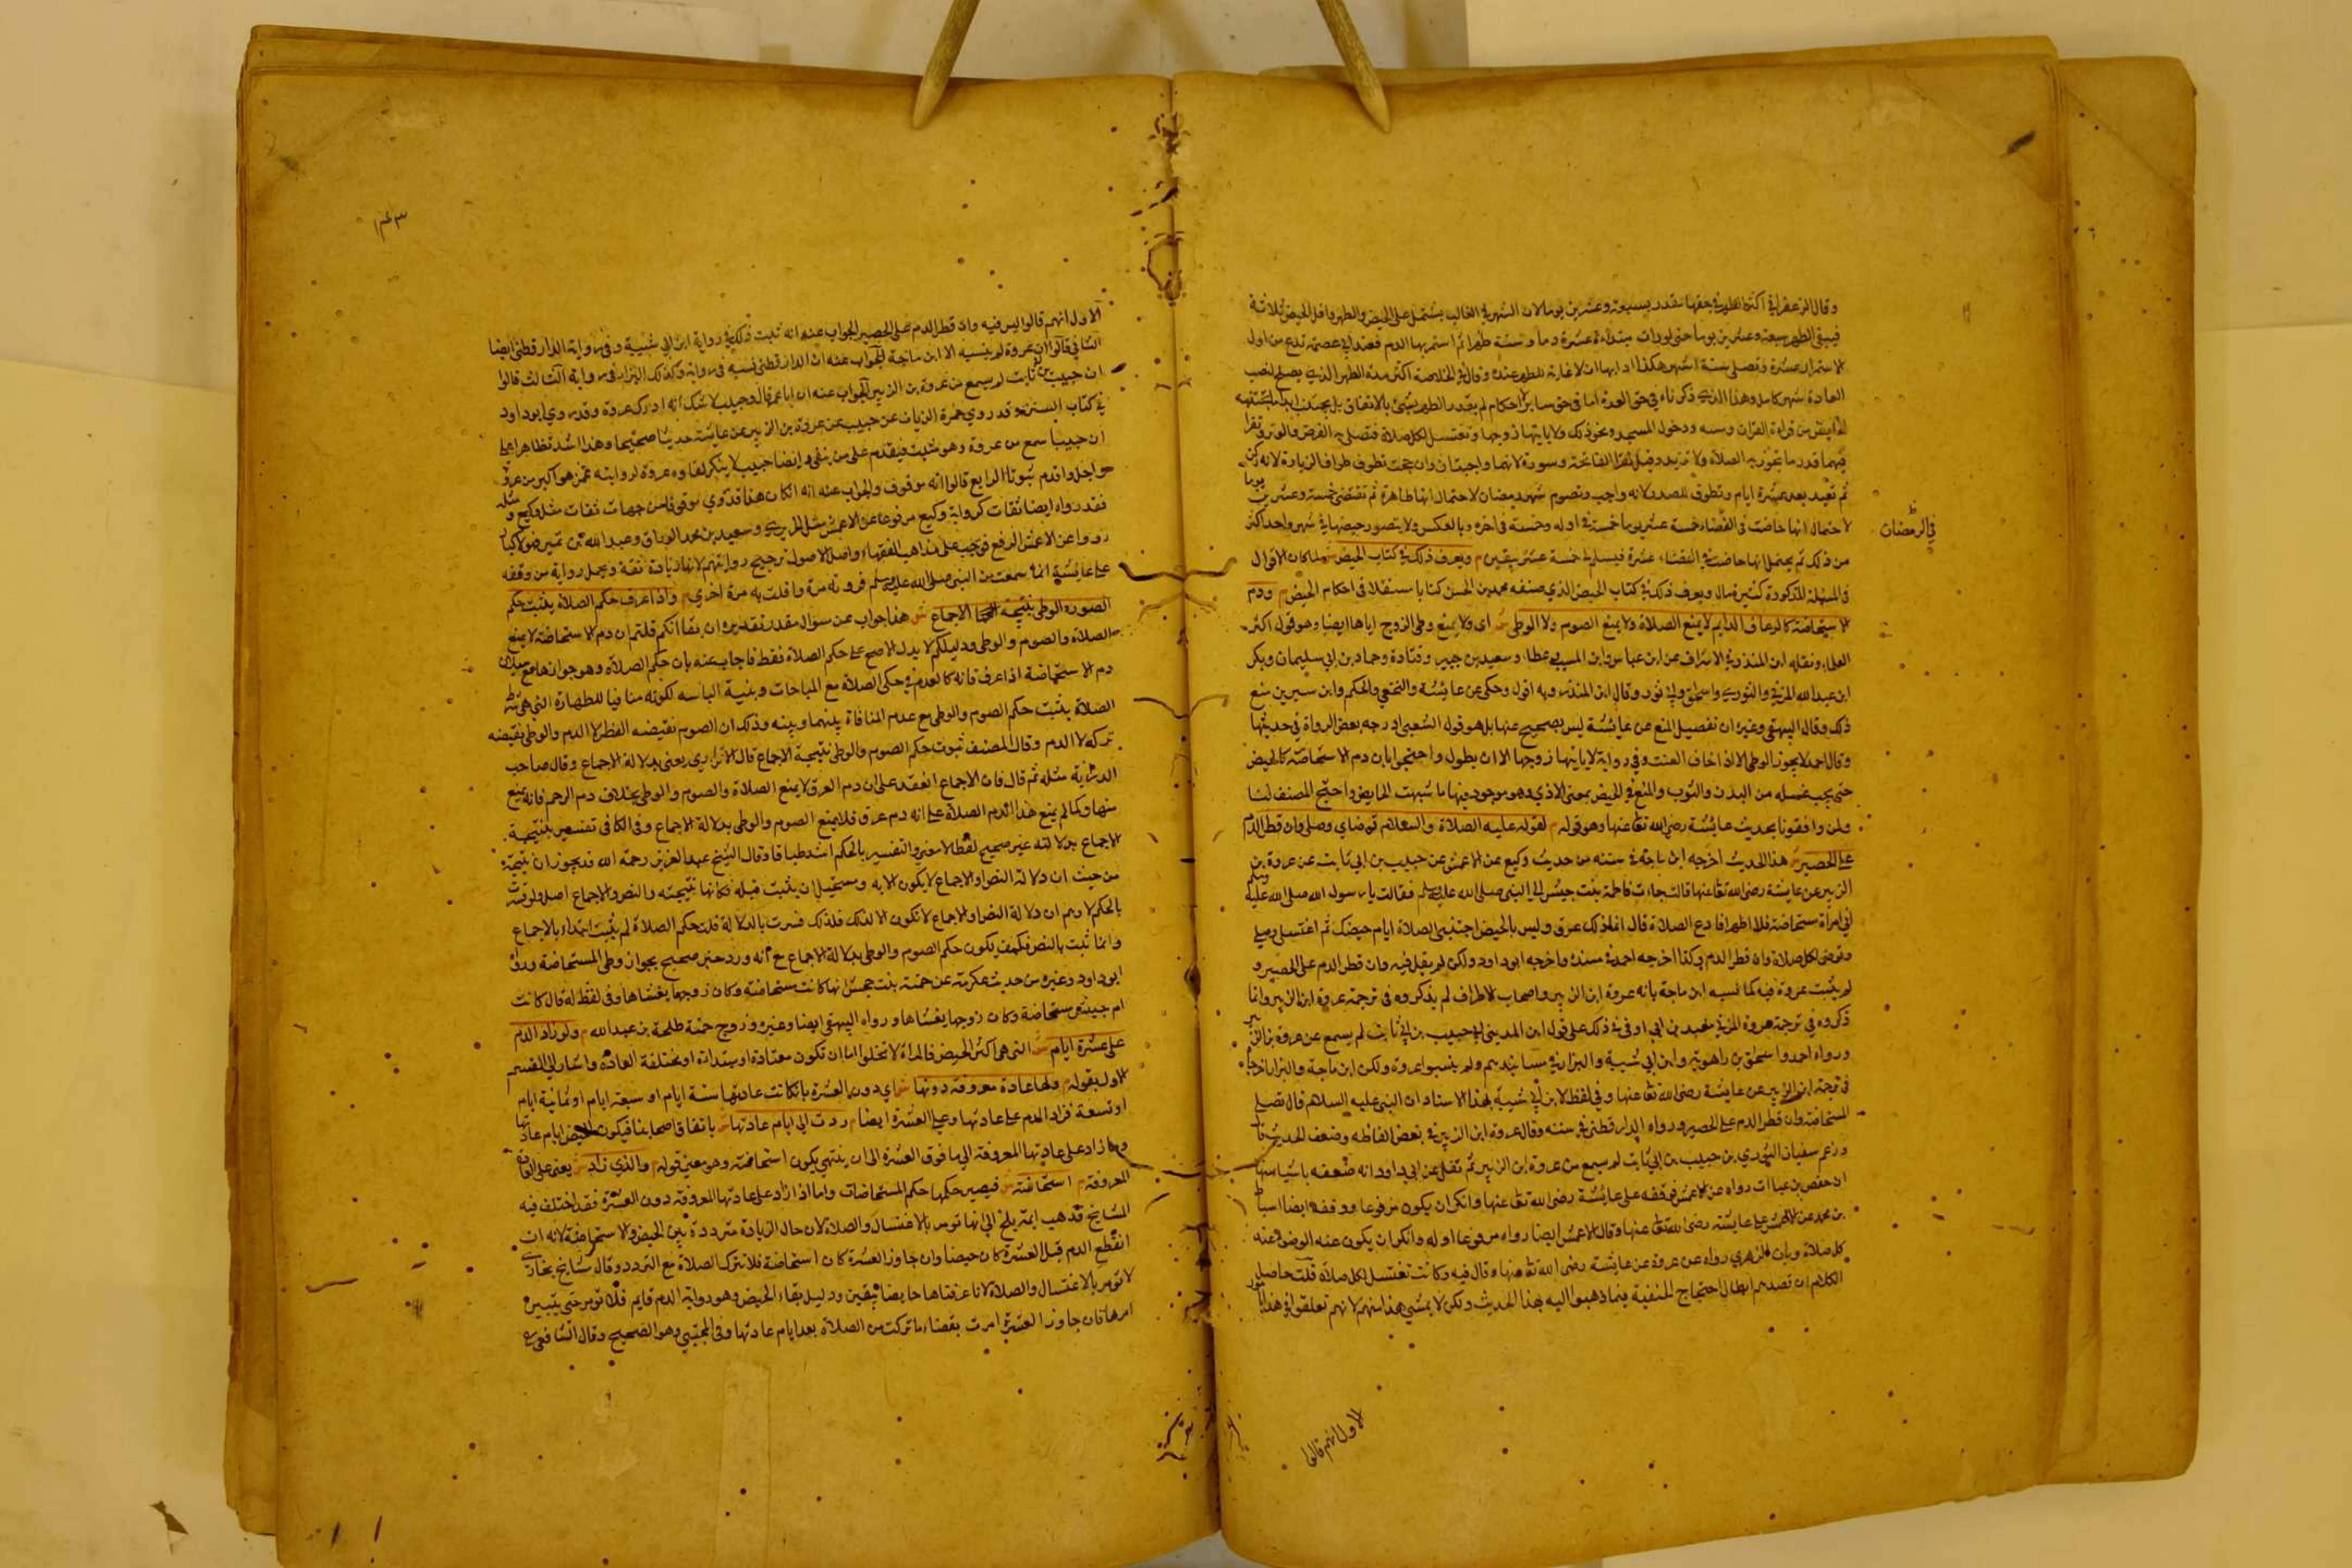 وقال الزعفراني اكثر الطهر في حقها مقدر بسبعة وعشرين يوما لان الشهر في الغالب يشتمل على الحيض والطهر واقل الحيض ثلاثة
فيبقى الطهر سبعة وعشرين يوما حتى لو رات مبتداءة عشرة دما وسنة طهرا ثم استمر بها الدم فعند ابي عصمة تدع من اول
الاستمرار عشرة وتصلي سنة
العادة شهر كامل وهذا الذي ذكرناه في حق العدة اما في حق سائر الاحكام لم يقدر الطهر بشيء بالاتفاق بل
من قراءة القران ومسه ودخول المسجد ونحو ذلك ولا ياتيها زوجها وتغتسل لكل صلاة فتصلي به الفرض والوتر وتقرا
فيهما قدر ما تجوز به الصلاة ولا تزيد وقيل تقرا الفاتحة وسورة لانهما واجبتان وان حجت تطوف طواف الزيارة لانه ركن
ثم تعيد بعد عشرة ايام وتطوف للصدر لانه واجب وتصوم شهر رمضان لاحتمال انها طاهرة ثم تقضي خمسة وعشرين يوما
لاحتمال انها حاضت في رمضان خمسة عشر يوما خمسة في اوله وخمسة في اخره وبالعكس ولا يتصور حيضها في شهر واحد اكثر
من ذلك ثم يحتمل انها حاضت في القضاء عشرة فيسلم خمسة عشر بيقين م ويعرف ذلك في كتاب الحيض ش لما كان الاقوال
في المسئلة المذكورة كثيرة قال ويعرف ذلك في كتاب الحيض الذي صنفه محمد بن الحسن كتابا مستقلا في احكام الحيض م ودم
الاستحاضة كالرعاف الدايم لا يمنع الصلاة ولا يمنع الصوم ولا الوطى ش اى ولا يمنع وطى الزوج اياها ايضا وهو قول اكثر
العلماء ونقله ابن المنذر في الاشراف عن ابن عباس وابن المسيب وعطاء وسعيد بن جبير وقتادة وحماد بن ابي سليمان وبكر
ابن عبد الله المزني والثوري واسحق وابي ثور وقال ابن المنذر وبه اقول وحكى عن عائشة والنخعي والحكم وابن سيرين منع
ذلك وقال البيهقي وغيره ان تفصيل المنع عن عائشة ليس بصحيح عنها بل هو قول الشعبي ادرجه بعض الرواة في حديثها
وقال احمد لا يجوز الوطى الا اذا خاف العنت وفي رواية لا ياتيها زوجها الا ان يطول واحتجوا بان دم الاستحاضة كالحيض
حتى يجب غسله من البدن والثوب والمنع في الحيض بمعنى الاذى وهو موجود فيها ما شبهت الحايض واحتج المصنف لنا
ولمن وافقونا بحديث عايشة رضى الله تعا عنها وهو قوله م لقوله عليه الصلاة والسلام توضاي وصلي وان قطر الدم
على الحصير ش هذا الحديث اخرجه ابن ماجة في سننه من حديث وكيع عن الاعمش عن حبيب بن ابي ثابت عن عروة بن
الزبير عن عايشة رضى الله تعا عنها قالت جاءت فاطمة بنت حبيش الى النبي صلى الله عليه وسلم فقالت يا رسول الله صلى الله عليه وسلم
اني امراة مستحاضة فلا اطهر افادع الصلاة قال انما ذلك عرق وليس بالحيض اجتنبي الصلاة ايام حيضك ثم اغتسلي وصلي
وتوضى لكل صلاة وان قطر الدم وكذا اخرجه احمد في مسنده واخرجه ابو داود ولكن لم يقل فيه وان قطر الدم على الحصير و
لم يثبت عروة فيه كما نسبه ابن ماجة بانه عروة ابن الزبير واصحاب الاطراف لم يذكروه في ترجمة عروة ابن الزبير وانما
ذكروه في ترجمة عروة المزني في ذلك على قول ابن المديني ان حبيب بن ابي ثابت لم يسمع عن عروة بن الزبير
ورواه احمد واسحق بن راهويه وابن ابي شيبة والبزار في مسانيدهم ولم ينسبوا عروة ولكن ابن ماجة والبزار اخرجاه
في ترجمة ابن الزبير عن عايشة رضى الله تعا عنها وفي لفظ لابن ابي شيبة بهذا الاسناد ان النبي عليه السلام قال تصلي
المستحاضة وان قطر الدم على الحصير ورواه الدارقطني في سننه وقال عروة ابن الزبير في بعض الفاظه وضعف الحديث
وزعم سفيان الثوري بن حبيب بن ابي ثابت لم يسمع من عروة ابن الزبير ثم نقل عن ابي داود انه ضعفه باشيا منها
ان حفص بن غياث رواه عن الاعمش فوقفه على عائشة رضى الله تعا عنها وانكر ان يكون مرفوعا ووقفه ايضا اسباط
بن محمد عن الاعمش على عايشة رضى الله تعا عنها وقال الاعمش ايضا رواه مرفوعا اوله وانكر ان يكون عنه الوضوء عند
كل صلاة وبان الزهري رواه عن عروة عن عايشة رضى الله تعا عنها وقال فيه وكانت تغتسل لكل صلاة قلت حاصل
الكلام ان قصدهم ابطال احتجاج الحنفية فيما ذهبوا اليه بهذا الحديث ولكن لا يمشي هذا منهم لانهم تعلقوا في هذا بامور
الاول انهم قالوا
١٤٣
الاول انهم قالوا ليس فيه وان قطر الدم على الحصير الجواب عنه انه ثبت ذلك في رواية ابن ابي شيبة وفي رواية الدارقطني ايضا
الثاني قالوا ان عروة لم ينسبه الا ابن ماجة الجواب عنه ان الدارقطني نسبه في رواية وكذلك البزار في رواية الثالث قالوا
ان حبيب بن ابي ثابت لم يسمع من عروة بن الزبير الجواب عنه ان ابا عمر قال وحبيب لا شك انه ادرك عروة وقد روي ابو داود
في كتاب السنن وقد روي حمزة الزيات عن حبيب عن عروة بن الزبير عن عايشة حديثا صحيحا وهذا اشد تظاهرا على
ان حبيبا سمع من عروة وهو مثبت فيقدم على من ينفي وايضا حبيب لا ينكر لقاؤه عروة لروايته عمن هو اكبر من عروة
واجل واقدم ثبوتا الرابع قالوا انه موقوف والجواب عنه انه ان كان هذا قد روي موقوفا من جهات ثقات مثل وكيع
فقد رواه ايضا ثقات كرواية وكيع مرفوعا عن الاعمش مثل الجريري وسعيد بن محمد الوراق وعبد الله بن نمير فهولاء كبار
رووا عن الاعمش الرفع فوجب على مذاهب الفقهاء واهل الاصول ترجيح روايتهم لانها زيادة ثقة ويحمل رواية من وقفه
على عائشة انها سمعت من النبي صلى الله عليه وسلم فروته مرة وافتت به مرة اخرى م واذا عرف حكم الصلاة يثبت حكم
الصوم والوطى بنتيجة الاجماع ش هذا جواب عن سوال مقدر تقديره ان يقال انكم قلتم ان دم الاستحاضة لا يمنع
الصلاة والصوم والوطى ودليلكم لا يدل الا على حكم الصلاة فقط فاجاب عنه بان حكم الصلاة وهو جوازها مع سيلان
دم الاستحاضة اذا عرف فانه كالعدم في حكم الصلاة مع
الصلاة يثبت حكم الصوم والوطى مع عدم المنافاة بينهما وبينه وذلك ان الصوم نقيضه الفطر لا الدم والوطى نقيضه
تركه لا الدم وقال المصنف ثبوت حكم الصوم والوطى نتيجة الاجماع قال الاترازي يعني بدلالة الاجماع وقال صاحب
الدراية مثله ثم قال فان الاجماع انعقد على ان دم العرق لا يمنع الصلاة والصوم والوطى بخلاف دم الرحم فانه يمنع
منها وكما لم يمنع هذا الدم الصلاة علم انه دم عرق فلا يمنع الصوم والوطى بدلالة الاجماع وفي الكافي تفسير نتيجة
الاجماع بدلالته غير صحيح لفظا لا معنى والتفسير بالحكم اشد طباقا وقال الشيخ عبد العزيز رحمه الله قد يجوز ان نتيجة
من حيث ان دلالة النص او الاجماع لا يكون الا به ومستحيل ان يثبت قبله فكانها نتيجته والنص والاجماع اصل
بالحكم لا وهم ان دلالة النص او الاجماع لا تكون الا لذلك فلذلك فسرت بالدلالة قلت حكم الصلاة لم يثبت ابتداء بالاجماع
وانما ثبت بالنص فكيف يكون حكم الصوم والوطى بدلالة الاجماع مع انه ورد خبر صحيح بجواز وطى المستحاضة وروى
ابو داود وغيره من حديث عكرمة عن حمنة بنت جحش انها كانت مستحاضة وكان زوجها يغشاها وفي لفظ له قال كانت
ام حبيبة مستحاضة وكان زوجها يغشاها ورواه البيهقي ايضا وغيره وزوج حمنة طلحة بن عبد الله م ولو زاد الدم
على عشرة ايام ش التي هي اكثر الحيض فالمراة لا تخلوا اما ان تكون معتادة او مبتداة او مختلفة العادة واشار الى القسم
الاول بقوله م ولها عادة معروفة دونها ش اي دون العشرة بان كانت عادتها ستة ايام او سبعة ايام او ثمانية ايام
او تسعة فزاد الدم على عادتها وعلى العشرة ايضا م ردت الى ايام عادتها ش باتفاق اصحابنا فيكون الحيض ايام عادتها
وما زاد على عادتها المعروفة الى ما فوق العشرة الى ان ينتهي يكون استحاضة وهو معنى قوله م والذي زاد ش يعني على العادة
المعروفة م استحاضة ش فيصير حكمها حكم المستحاضات واما اذا زاد على عادتها المعروفة دون العشرة فقد اختلف فيه
المشايخ فذهب ايمة بلخ الى انها تومر بالاغتسال والصلاة لان حال الزيادة مترددة بين الحيض والاستحاضة لانه ان
انقطع الدم قبل العشرة كان حيضا وان جاوز العشرة كان استحاضة فلا تترك الصلاة مع التردد وقال مشايخ بخارى
لا تومر بالاغتسال والصلاة لانا عرفناها حايضا بيقين ودليل بقاء الحيض وهو رواية الدم قايم فلا تومر حتى يتبين
امرها فان جاوز العشرة امرت بقضاء ما تركت من الصلاة بعد ايام عادتها وفي المجتبى وهو الصحيح وقال الشافعي